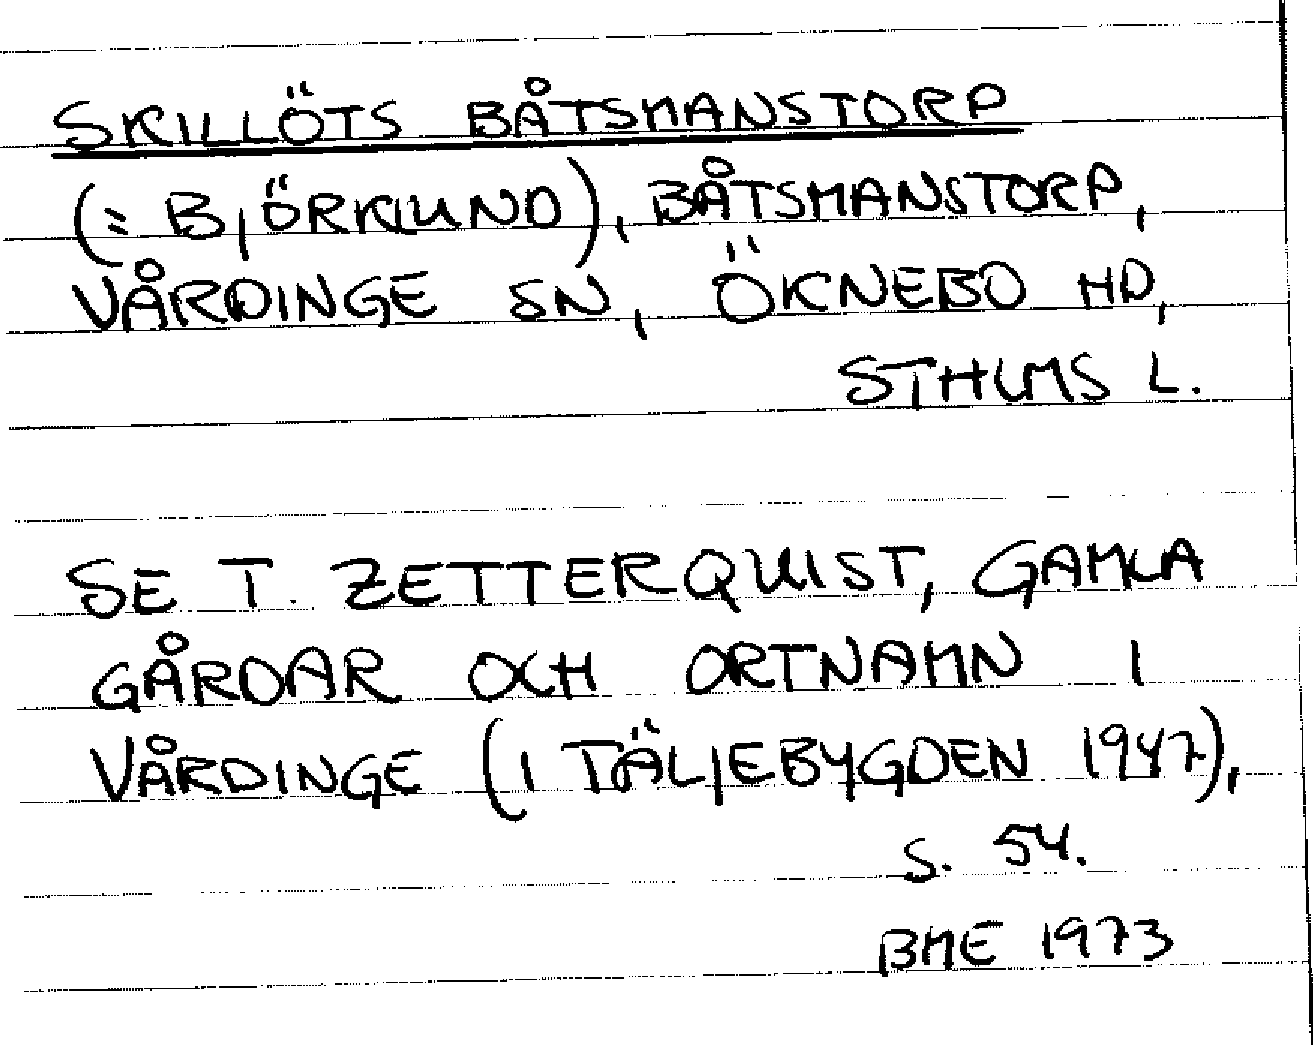 SKILLÖTS BÅTSMANSTORP
(= BJÖRKLUND), BÅTSMANSTORP,
VÅRDINGE SN, ÖKNEBO HD,
STHLMS L.
SE T. ZETTERQUIST, GAMLA
GÅRDAR OCH ORTNAMN I
VÅRDINGE (I TÄLJEBYGDEN 1947),
S. 54.
BME 1973